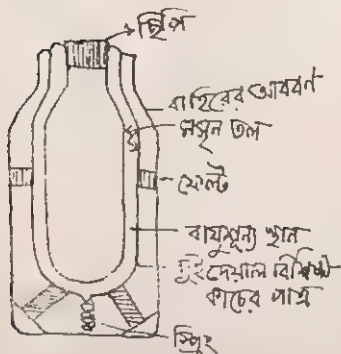 ছিপি
বাহিরের আবরণ
মসৃন তল
ফেল্ট
বায়ুশূন্য স্থান
দুই দেয়াল বিশিষ্ট
কাচের পাত্র
স্প্রিং